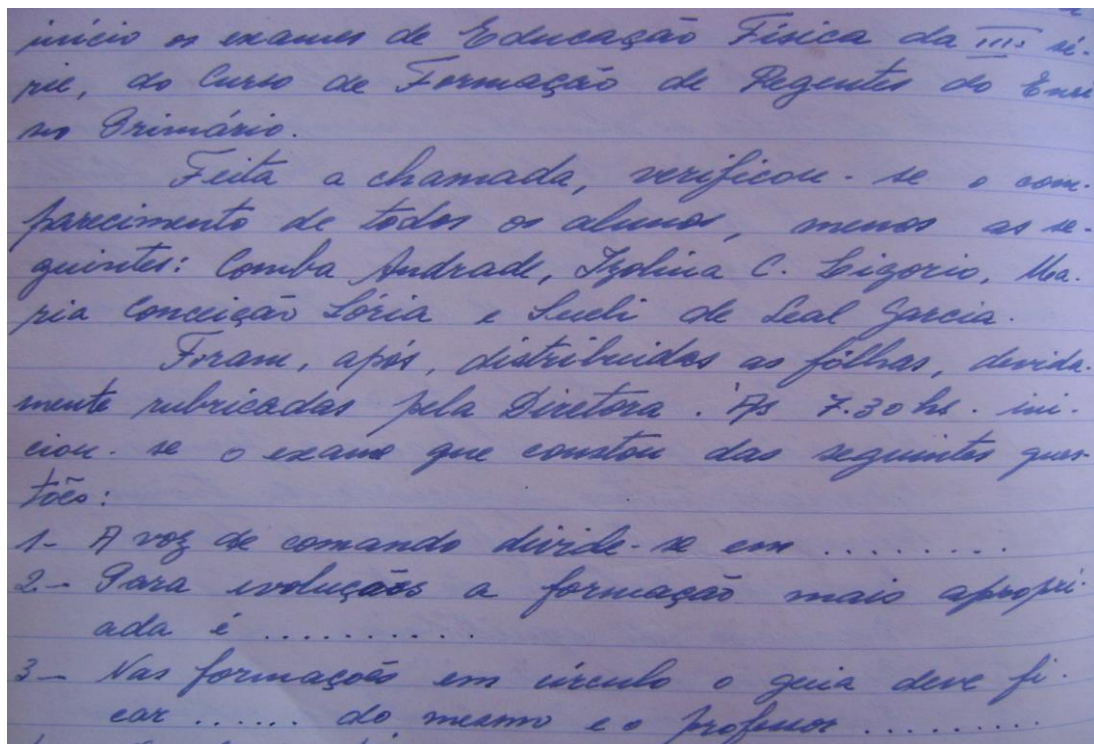 início os exames de Educação Física da III. sé-
rie, do Curso de Formação de Regentes do Ensi
no Primário.
Feita a chamada, verificou-se o com-
parecimento de todos os alunos, menos as se-
guintes: Comba Andrade, Izolina C. Ligorio, Ma-
ria Conceição Lória e Sueli de Leal Garcia.
Foram, após, distribuidas as fôlhas, devida-
mente rubricadas pela Diretora. Às 7.30 hs. ini-
ciou-se o exame que constou das seguintes ques-
tões:
1- A voz de comando divide-se em .........
2- Para evoluções a formação mais apropri-
ada é ...........
3- Nas formações em círculo o guia deve fi-
car ...... do mesmo e o professor .........